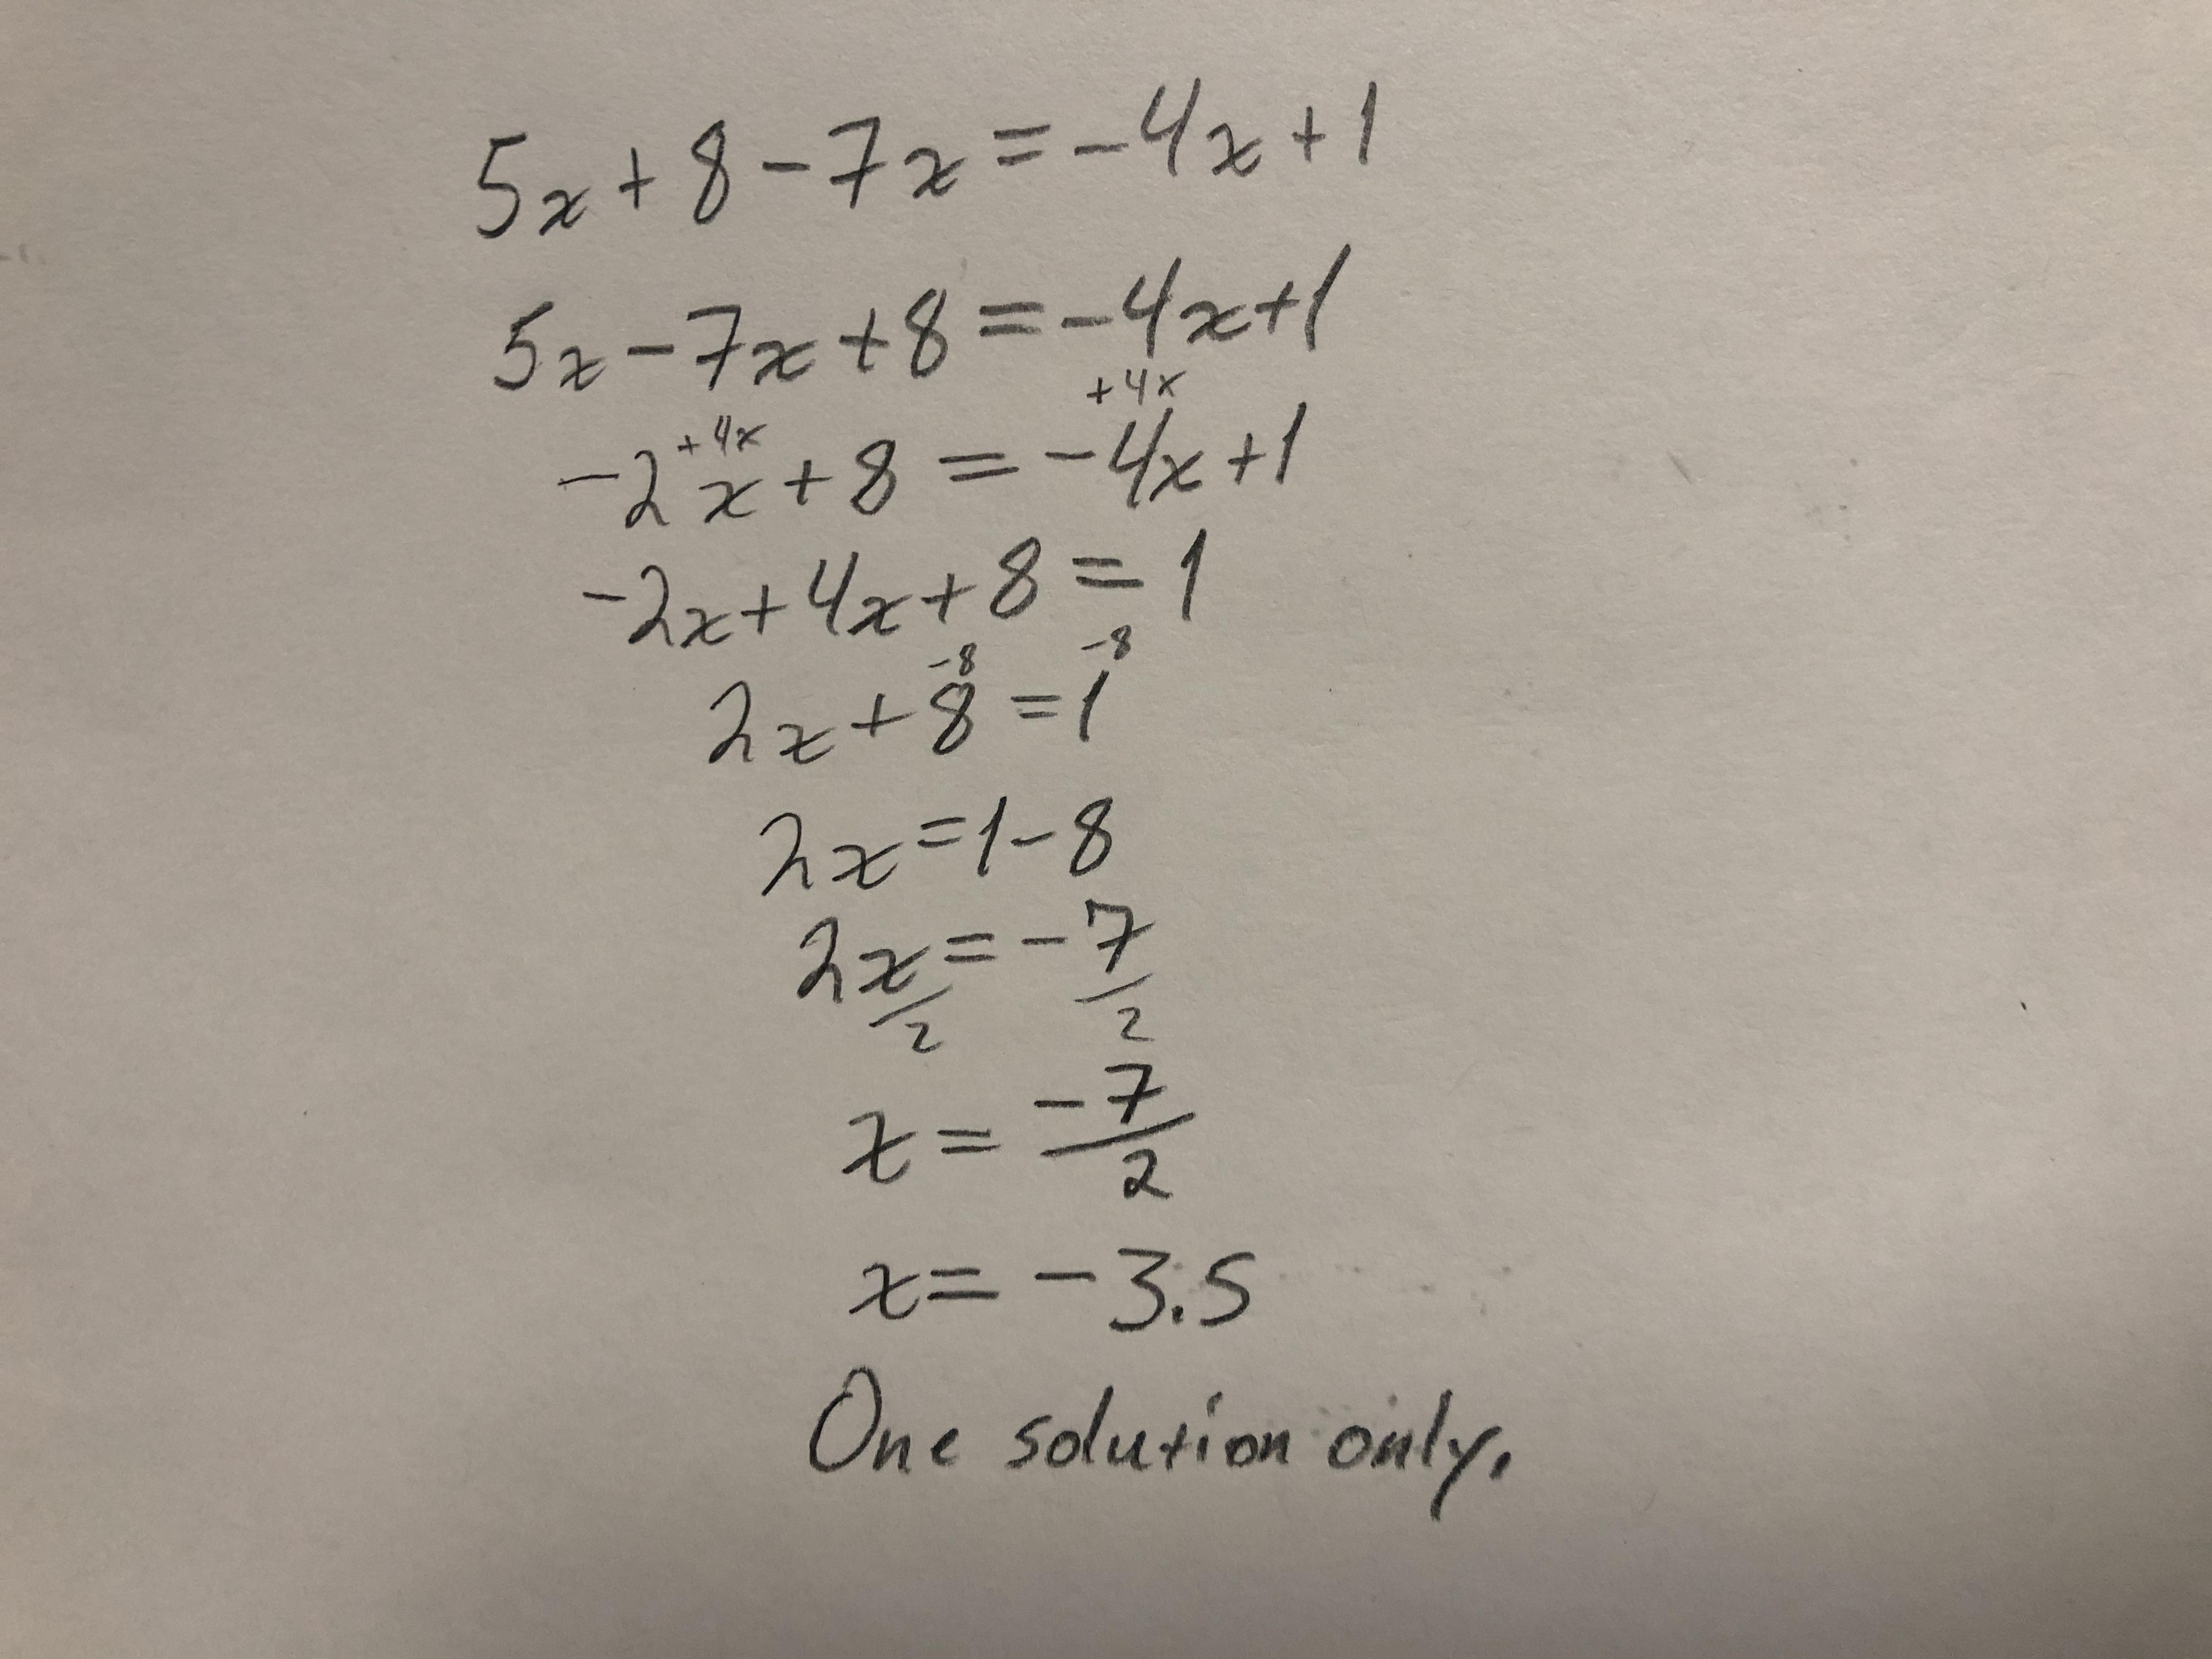 5x+8-7x=-4x+1
5x-7x+8=-4x+1
+4x
+4x
-2x+8=-4x+1
-2x+4x+8=1
-8 -8
2x+8=1
2x=1-8
2x/2=-7/2
x=-7/2
x=-3.5
One solution only.